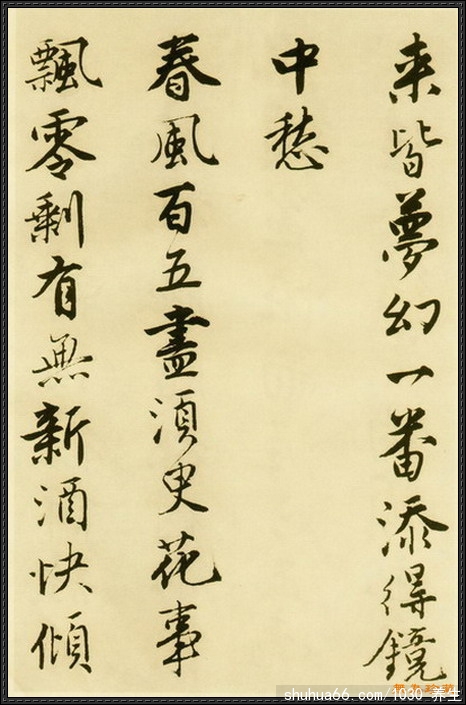 来皆夢幻一番添得鏡
中愁
春風百五盡須臾花事
飄零剩有無新酒快傾
shuhua66.com /1030 养生